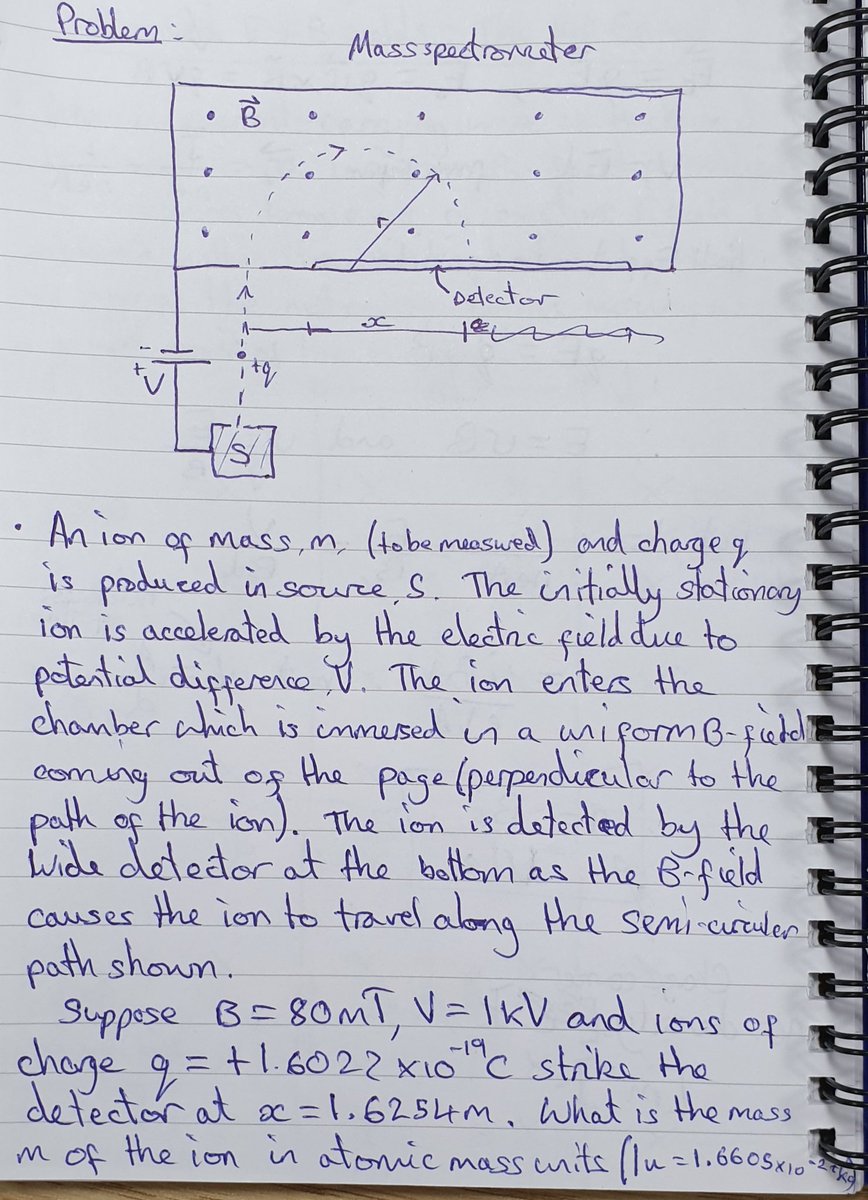 Problem :
Mass spectrometer
B
r
Detector
x
-
+
V
+q
S
• An ion of mass, m, (to be measured) and charge q
is produced in source, S. The initially stationary
ion is accelerated by the electric field due to
potential difference, V. The ion enters the
chamber which is immersed in a uniform B-field
coming out of the page (perpendicular to the
path of the ion). The ion is detected by the
wide detector at the bottom as the B-field
causes the ion to travel along the semi-circular
path shown.
Suppose B = 80mT, V = 1kV and ions of
charge q = +1.6022 x10⁻¹⁹C strike the
detector at x = 1.6254m. What is the mass
m of the ion in atomic mass units (1u = 1.6605x10⁻²⁷kg